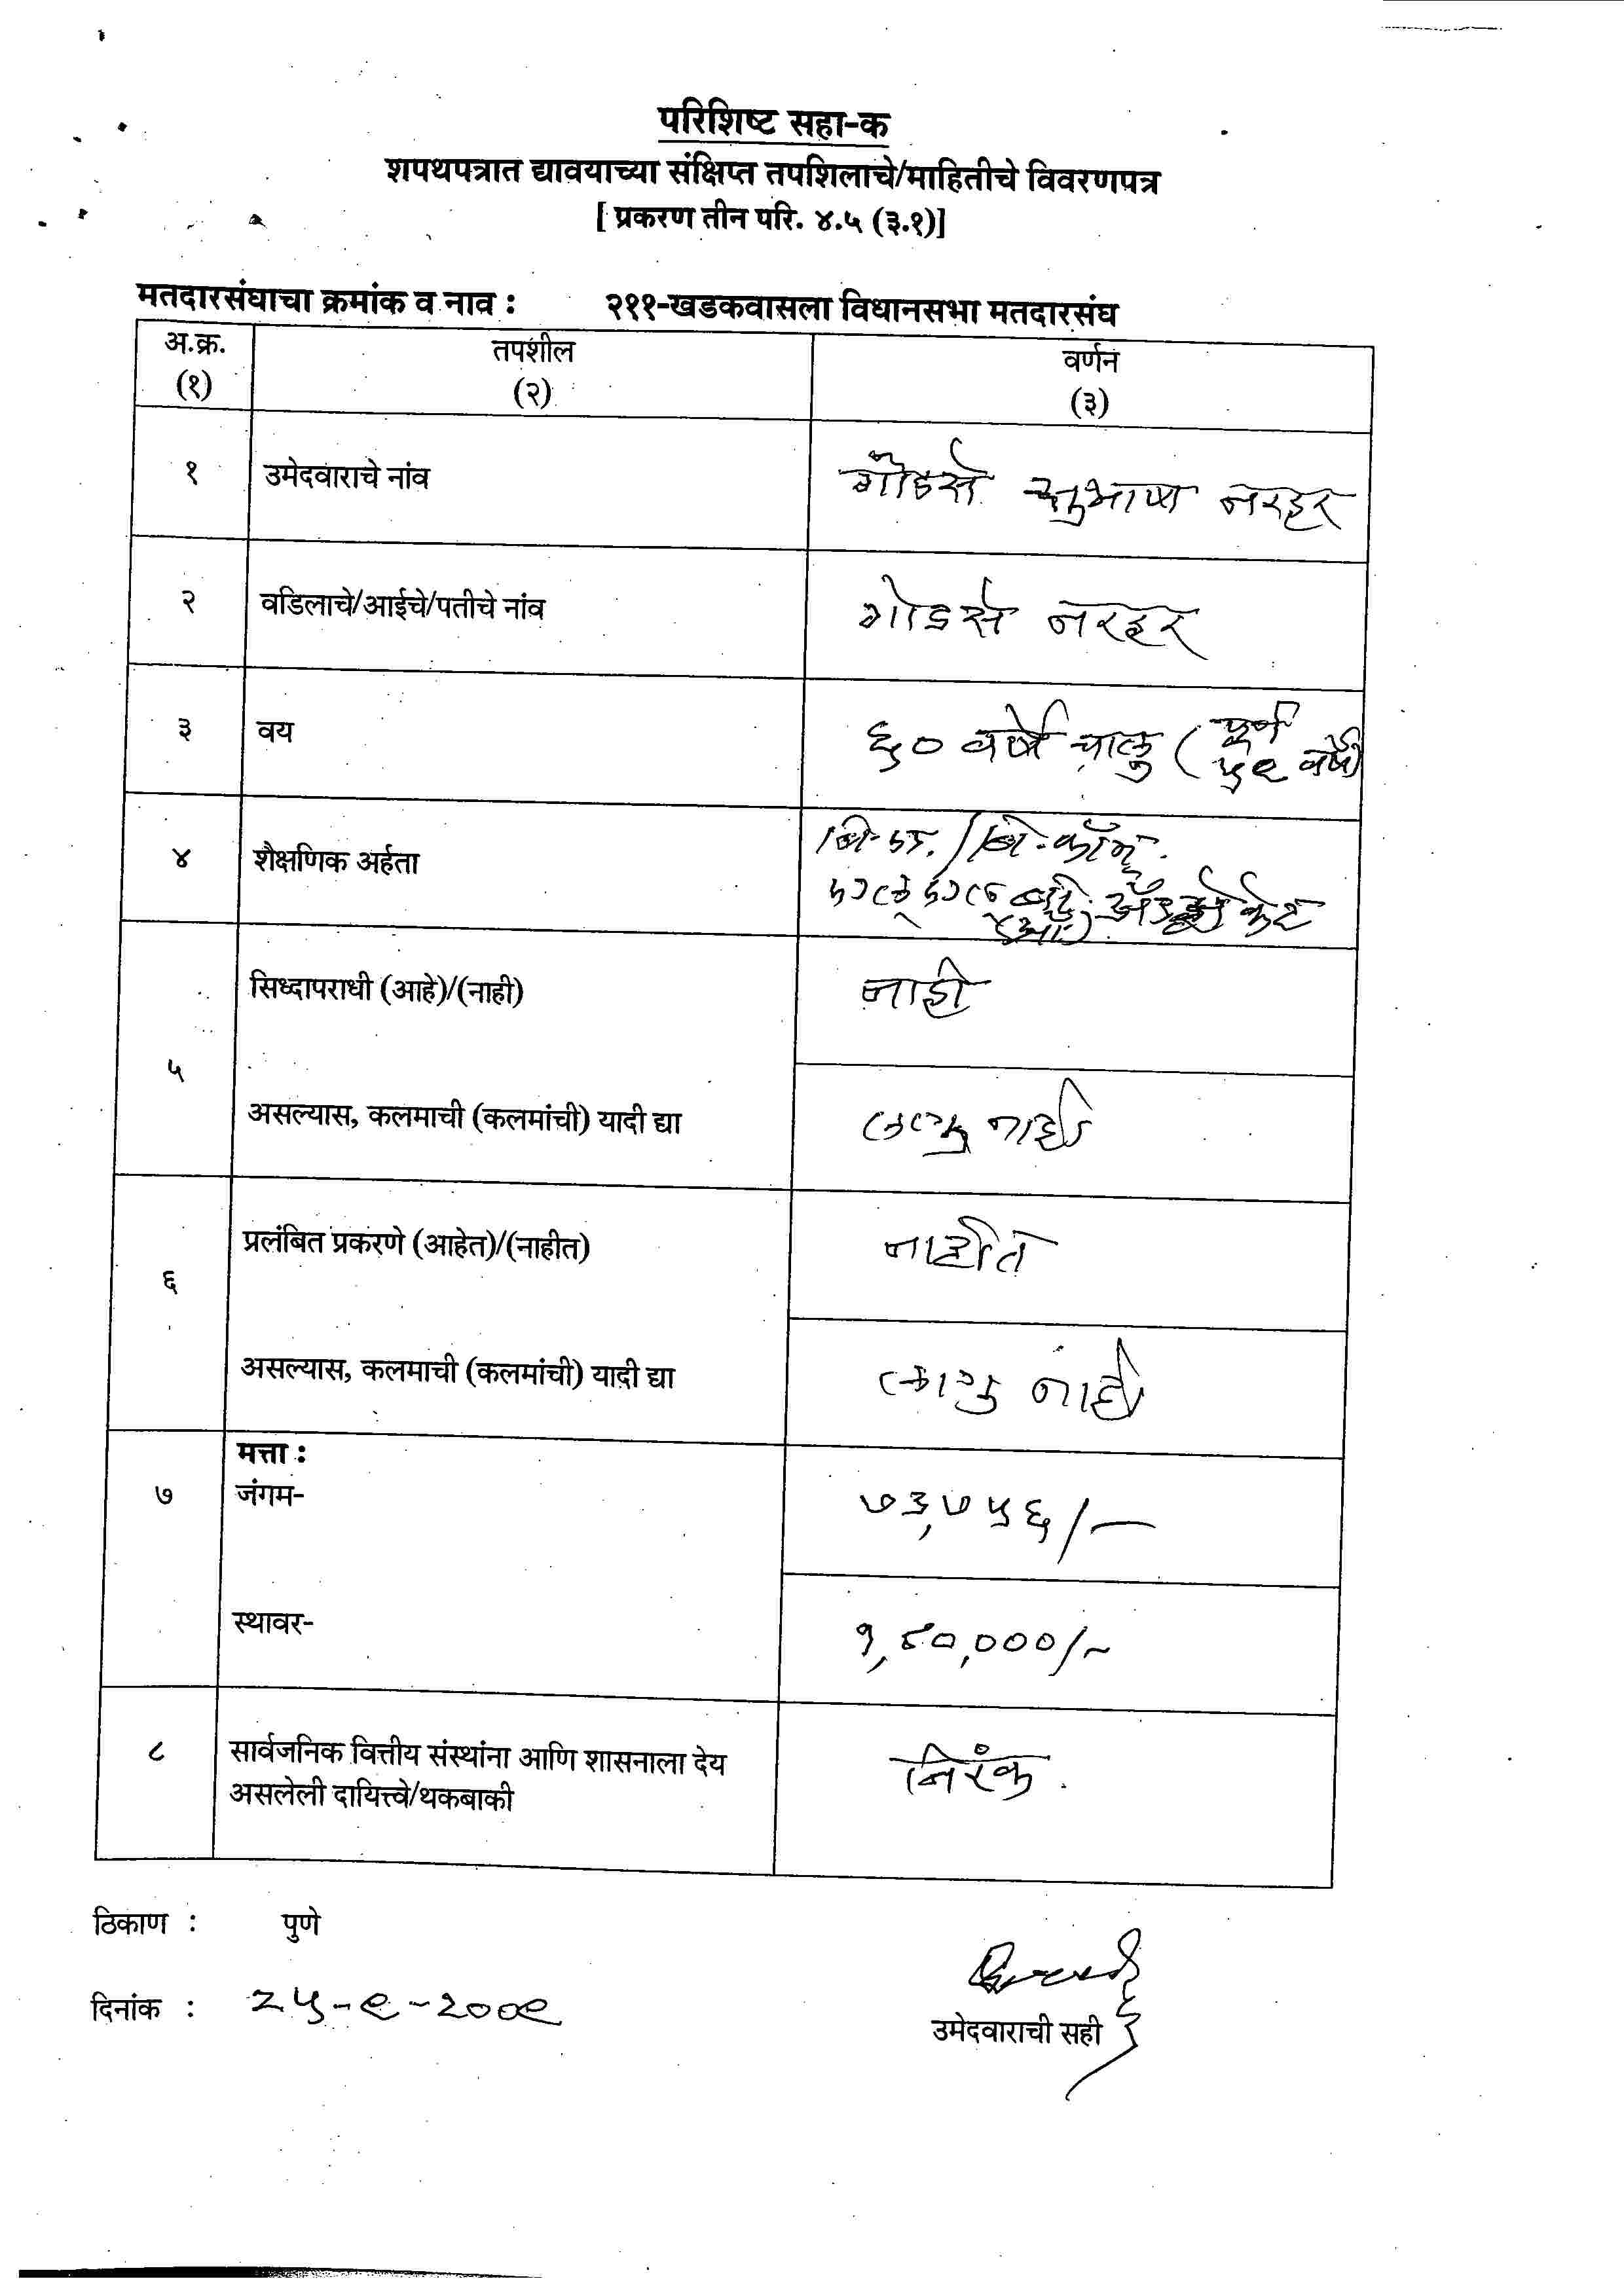 परिशिष्ट सहा-क
शपथपत्रात द्यावयाच्या संक्षिप्त तपशिलाचे/माहितीचे विवरणपत्र
[ प्रकरण तीन परि. ४.५ (३.१)]
मतदारसंघाचा क्रमांक व नाव : २११-खडकवासला विधानसभा मतदारसंघ
अ.क्र. तपशील वर्णन
(१) (२) (३)
१ उमेदवाराचे नांव गोडसे सुभाष नरहर
२ वडिलाचे/आईचे/पतीचे नांव गोडसे नरहर
३ वय ६० वर्षे चालु (पूर्ण
५९ वर्षे)
४ शैक्षणिक अर्हता बि.ए./बि.कॉम्.
ॲडव्होकेट
सिध्दापराधी (आहे)/(नाही) नाही
५
असल्यास, कलमाची (कलमांची) यादी द्या लागु नाही
प्रलंबित प्रकरणे (आहेत)/(नाहीत) नाहीत
६
असल्यास, कलमाची (कलमांची) यादी द्या लागु नाही
मत्ता :
७ जंगम- ७३,७५६/-
स्थावर- १,८०,०००/-
८ सार्वजनिक वित्तीय संस्थांना आणि शासनाला देय निरंक.
असलेली दायित्त्वे/थकबाकी
ठिकाण : पुणे
दिनांक : २५-९-२००९
उमेदवाराची सही